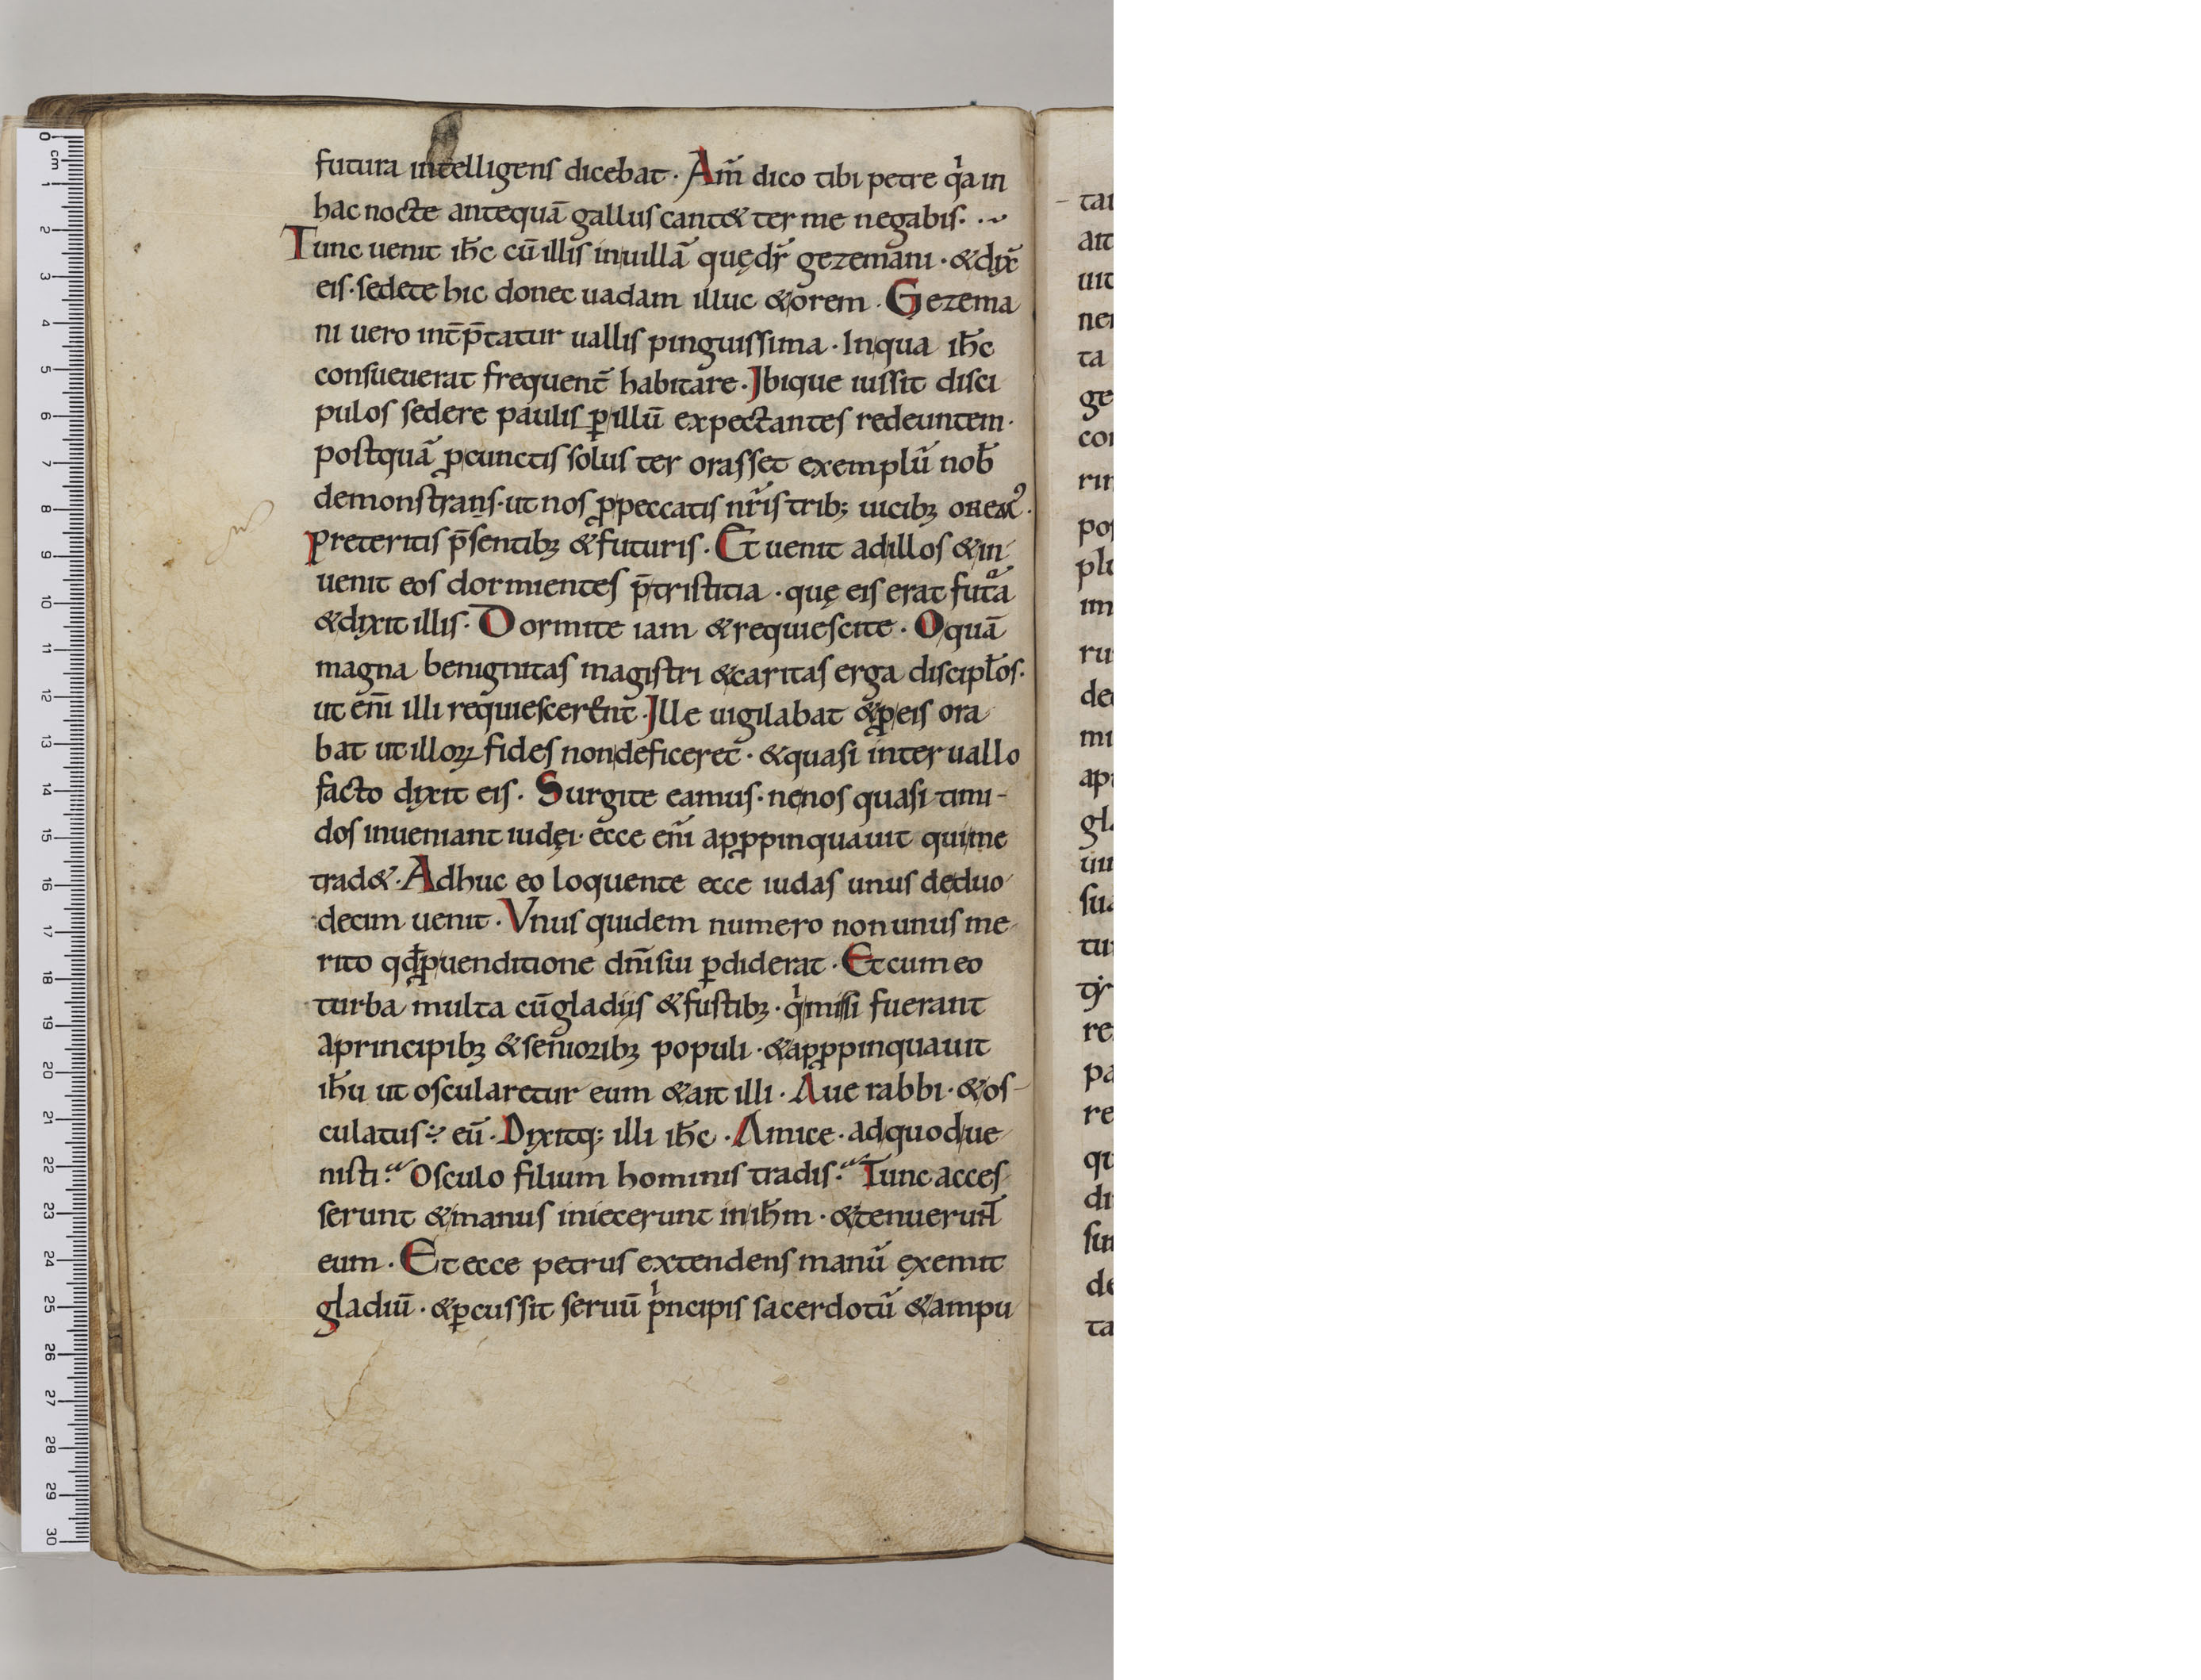 futura intelligens dicebat· Am̄ dico tibi petre qͥa in
hac nocte antequā gallus cant& ter me negabis· ·~
Tunc uenit ih̄c cū illis in uillā quę dr̄ gezemani · & dix̄
eis· sedete hic donec uadam illuc & orem · Gezema
ni uero int̄p̄tatur uallis pinguissima · In qua ih̄c
consueuerat frequent̄ habitare · Ibique iussit disci
pulos sedere paulisꝑ illū expectantes redeuntem·
postquā ꝓ cunctis solus ter orasset exemplū nob̄
demonstrans· ut nos ꝓ peccatis nr̄is trib; uicibꝫ orem᷒·
preteritis p̄sentibꝫ & futuris · Et uenit ad illos & in
uenit eos dormientes p̄ tristitia · quę eis erat futᵃa
& dixit illis· Dormite iam & requiescite · O quā
magna benignitas magistri & caritas erga discipl̄os·
ut eni̅ illi requiescerent · Ille uigilabat & ꝓ eis ora
bat ut illoꝝ fides non deficeret · & quasi interuallo
facto dixit eis · Surgite eamus· ne nos quasi timi-
dos inueniant iudęi· ecce eni̅ apꝓpinquauit qui me
trad& · Adhuc eo loquente ecce iudas unus de duo
decim uenit · Vnus quidem numero non unus me
rito qđ ꝓ uenditione dn̄i sui ꝑdiderat · Et cum eo
turba multa cū gladiis & fustibꝫ · qͥ missi fuerant
a principibꝫ & senioribꝫ populi · & apꝓpinquauit
ih̄u ut oscularetur eum & ait illi · Aue rabbi · & os-
culatus ÷ eū · Dixitq; illi ih̄c · Amice · ad quod ue
nisti? Osculo filium hominis tradis? Tunc acces
serunt & manus iniecerunt in ih̄m · & tenuerunt
eum · Et ecce petrus extendens manū exemit
gladiū · & ꝑcussit seruū pͥncipis sacerdotū & ampu
0 cm 1 2 3 4 5 6 7 8 9 10 11 12 13 14 15 16 17 18 19 20 21 22 23 24 25 26 27 28 29 30